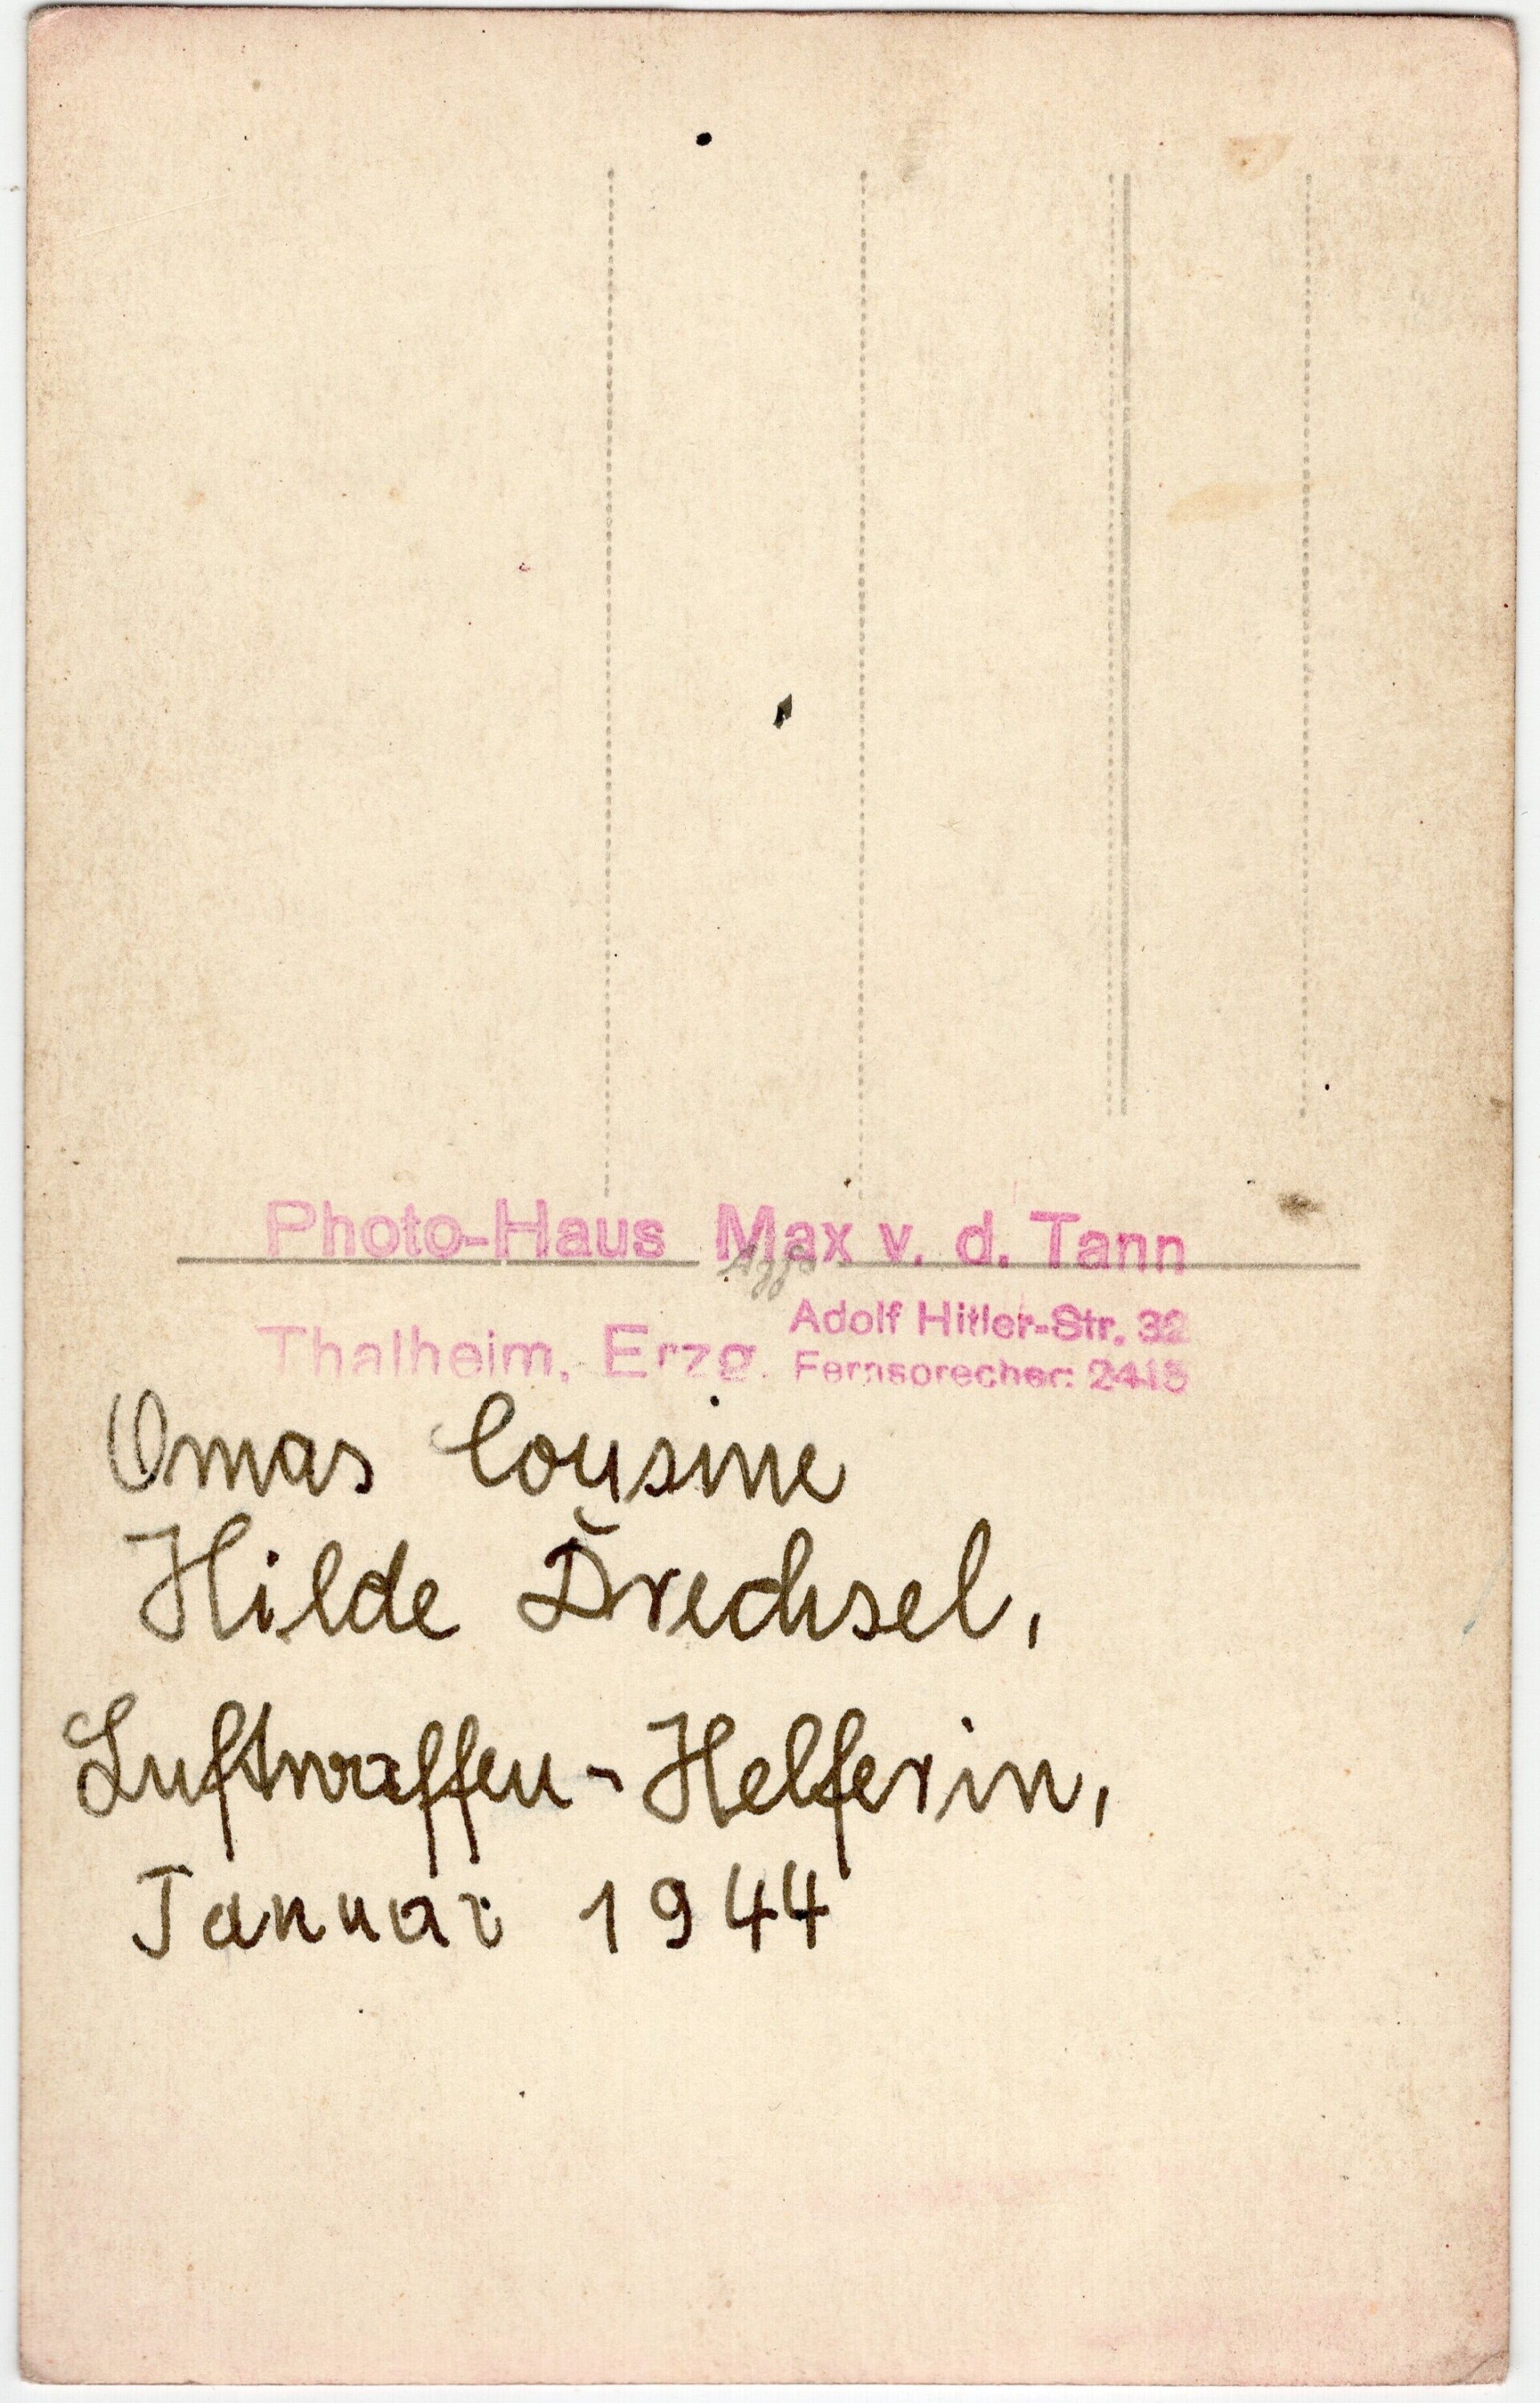 Photo-Haus Max v. d. Tann
Thalheim, Erzg.
Adolf Hitler-Str. 32
Fernsprecher: 2415
Omas Cousine
Hilde Drechsel,
Luftwaffen-Helferin,
Januar 1944